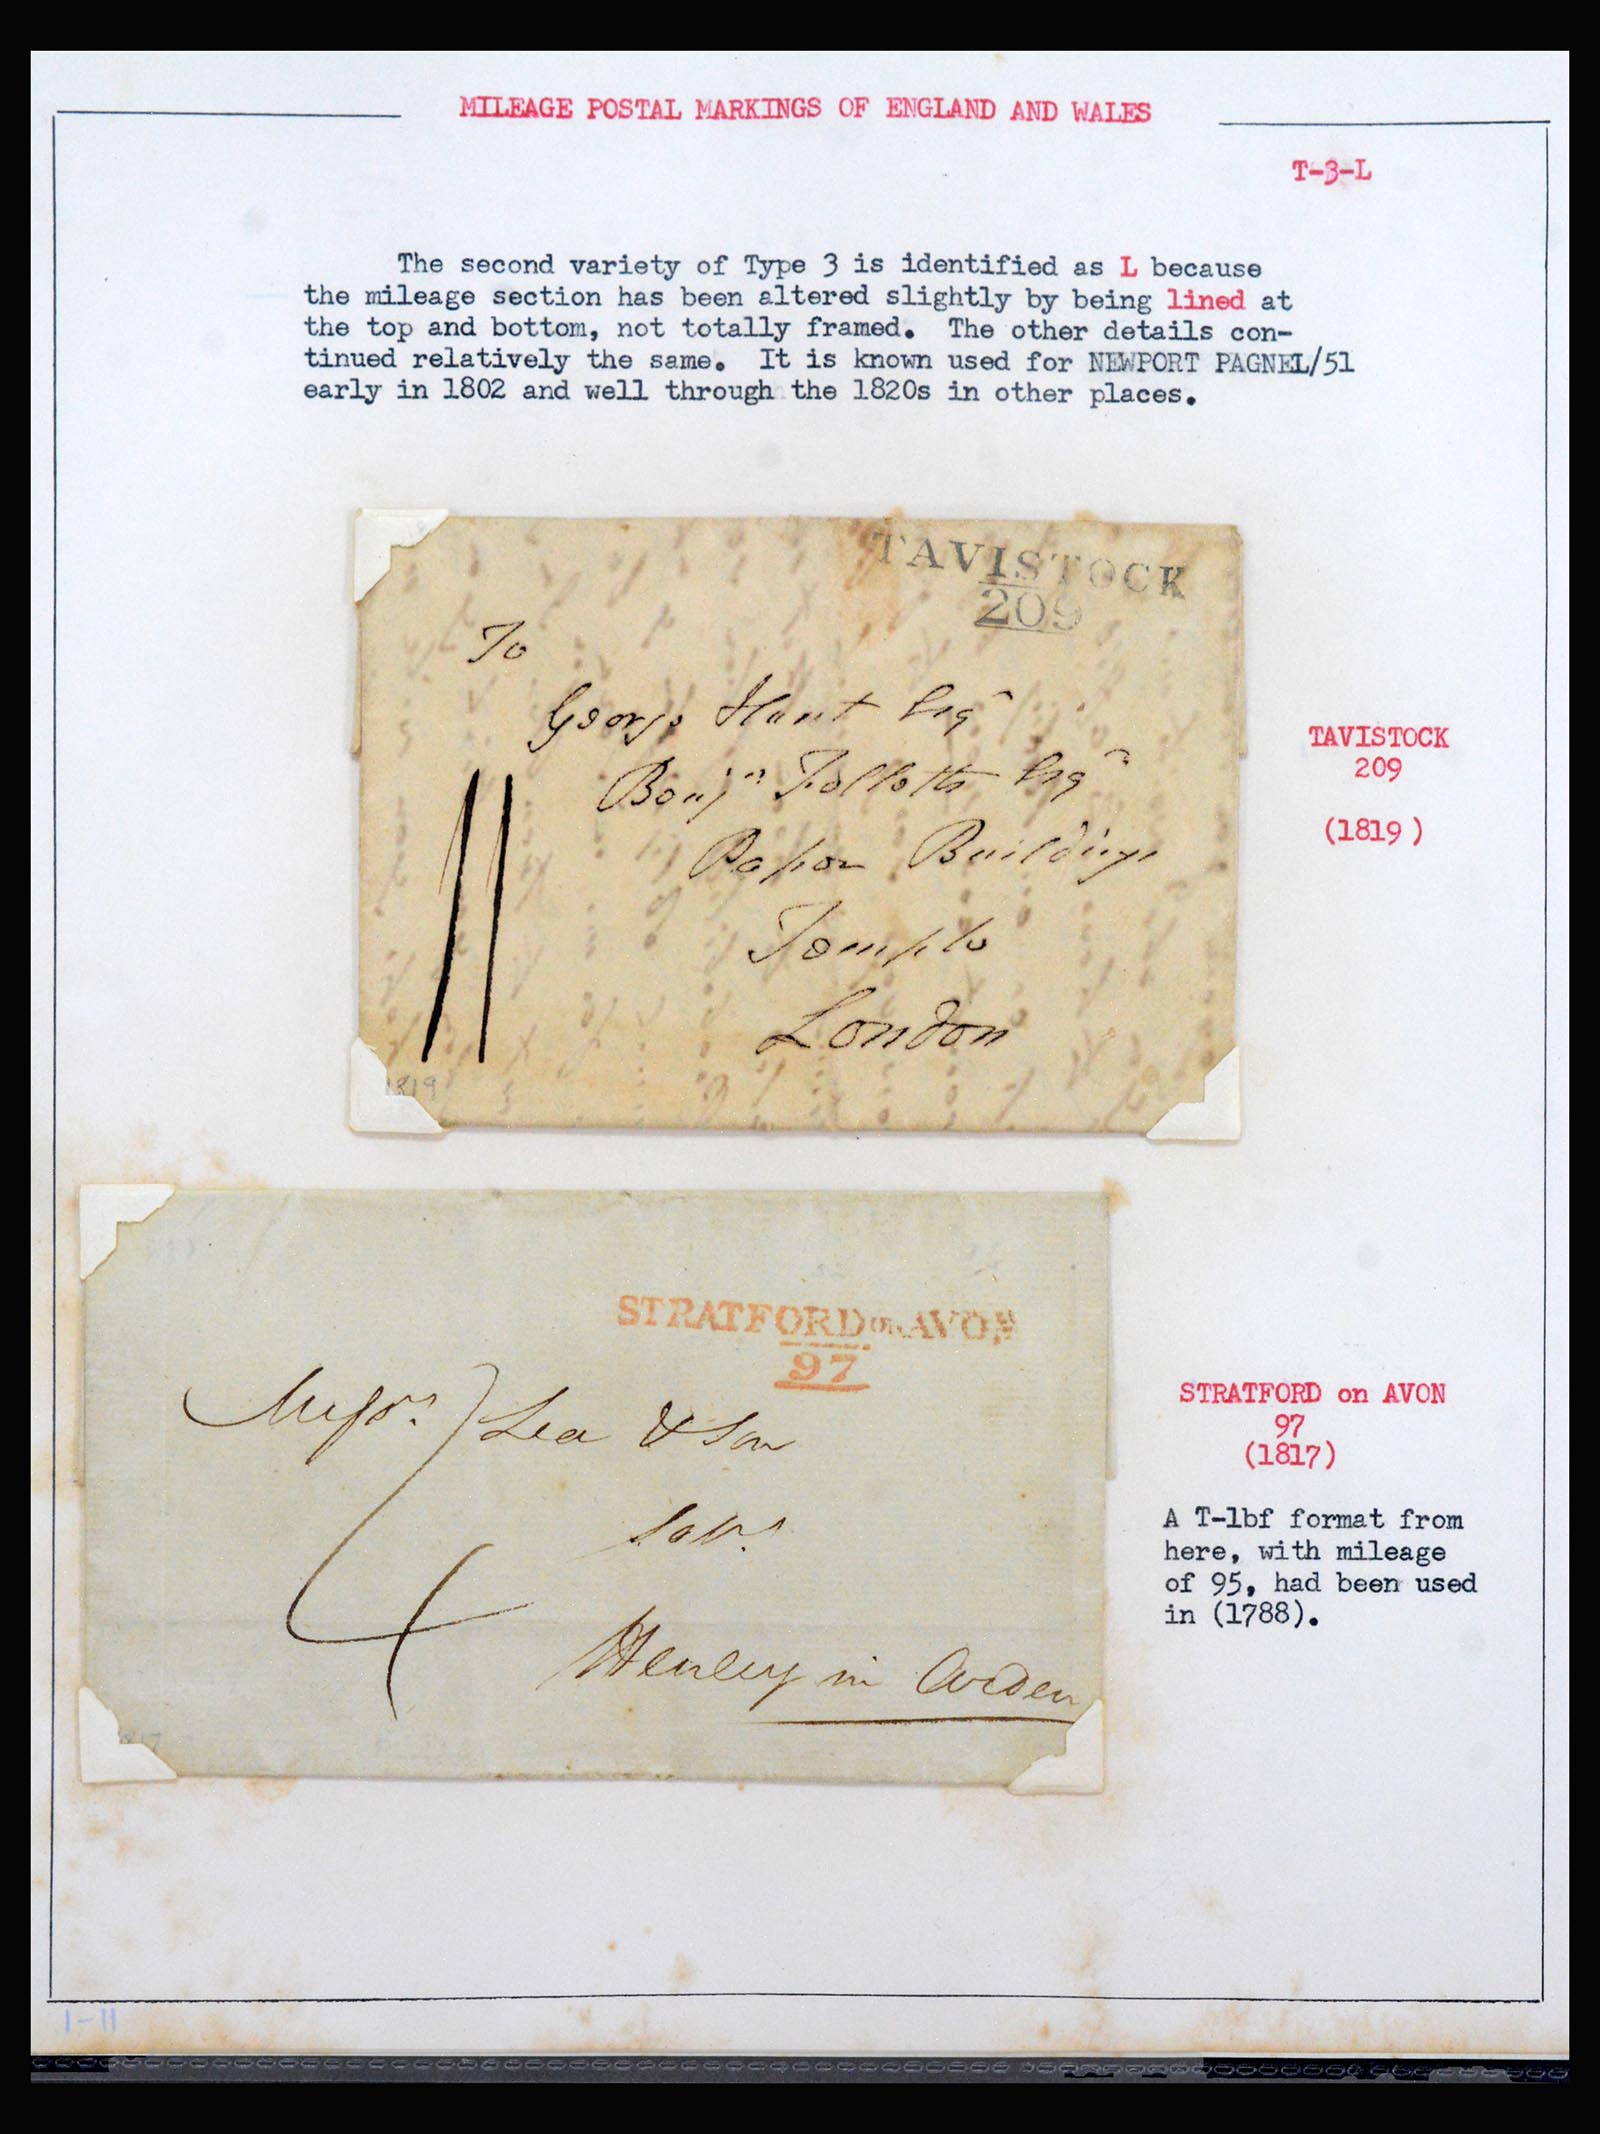 MILEAGE POSTAL MARKINGS OF ENGLAND AND WALES
T-3-L
The second variety of Type 3 is identified as L because
the mileage section has been altered slightly by being lined at
the top and bottom, not totally framed. The other details con-
tinued relatively the same. It is known used for NEWPORT PAGNEL/51
early in 1802 and well through the 1820s in other places.
TAVISTOCK
209
To
George Hunt Esqr
Benjn Follotts Esqrs
Paper Buildings
Temple
London
11
1819
TAVISTOCK
209
(1819)
STRATFORD on AVON
97
Messrs Lea & Son
Solrs
Henley in Arden
4
1817
STRATFORD on AVON
97
(1817)
A T-1bf format from
here, with mileage
of 95, had been used
in (1788).
1-11